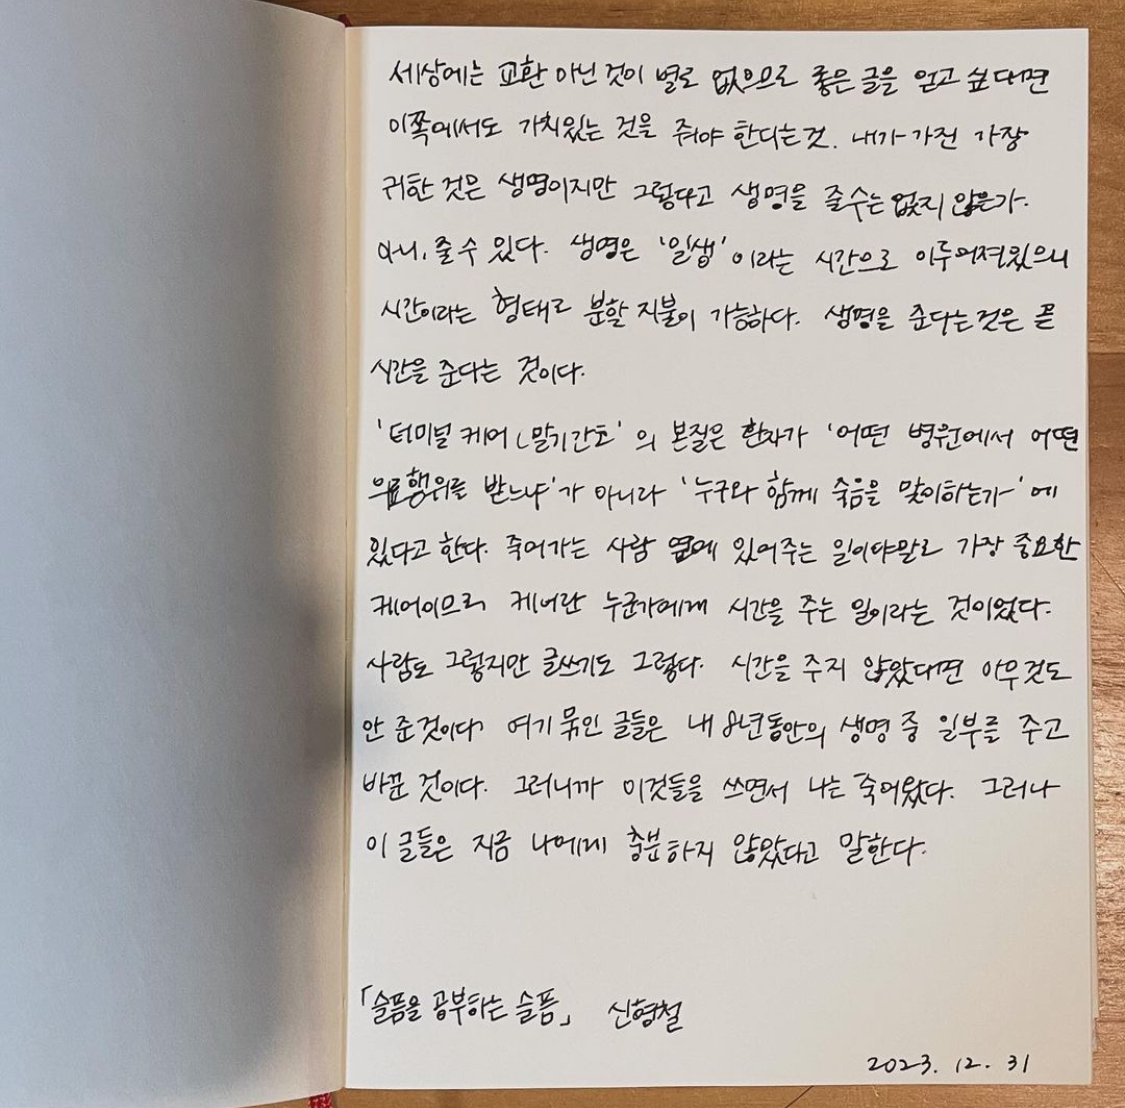 세상에는 교환 아닌 것이 별로 없으므로 좋은 글을 얻고 싶다면
이쪽에서도 가치있는 것을 줘야 한다는것. 내가 가진 가장
귀한 것은 생명이지만 그렇다고 생명을 줄수는 없지 않은가.
아니, 줄 수 있다. 생명은 '일생' 이라는 시간으로 이루어져있으니
시간이라는 형태로 분할 지불이 가능하다. 생명을 준다는것은 곧
시간을 준다는 것이다.
'터미널 케어 (말기간호' 의 본질은 환자가 '어떤 병원에서 어떤
의료행위를 받느냐'가 아니라 '누구와 함께 죽음을 맞이하는가' 에
있다고 한다. 죽어가는 사람 옆에 있어주는 일이야말로 가장 중요한
케어이므로 케어란 누군가에게 시간을 주는 일이라는 것이었다.
사람도 그렇지만 글쓰기도 그렇다. 시간을 주지 않았다면 아무것도
안 준것이다 여기 묶인 글들은 내 8년동안의 생명 중 일부를 주고
바꾼 것이다. 그러니까 이것들을 쓰면서 나는 죽어왔다. 그러나
이 글들은 지금 나에게 충분하지 않았다고 말한다.
「슬픔을 공부하는 슬픔」 신형철
2023. 12. 31